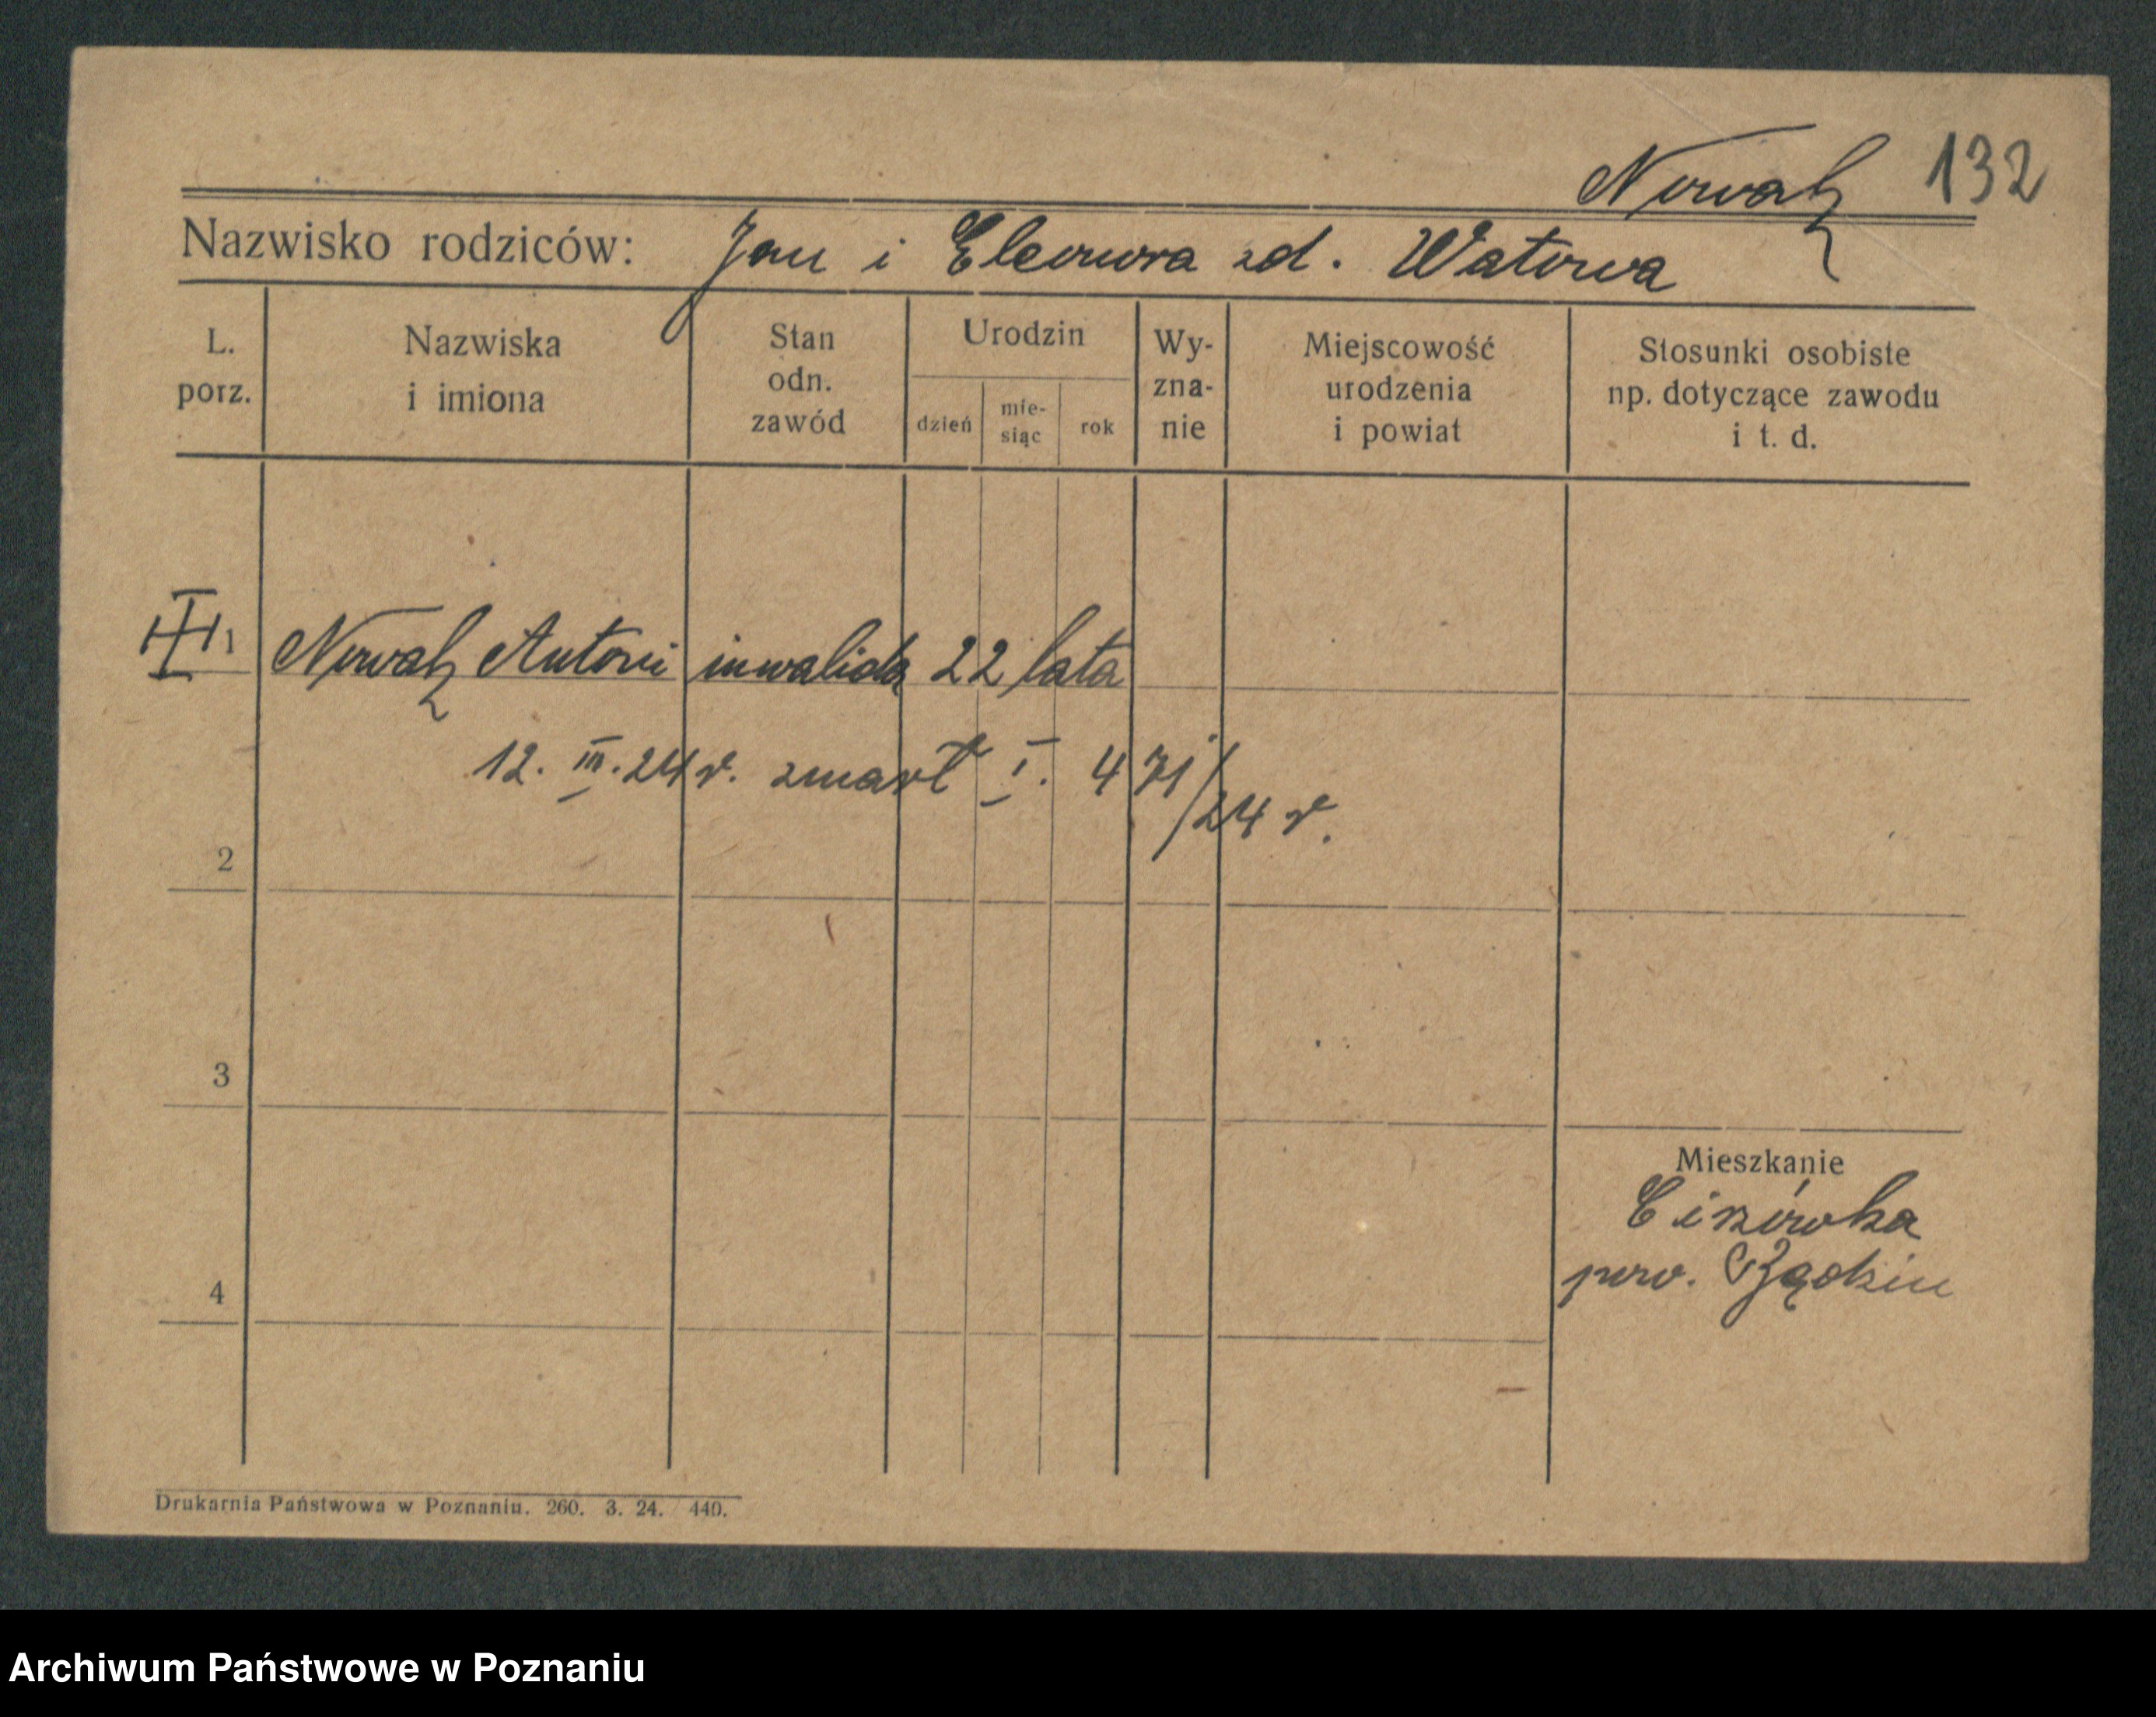 Nowak 132
Nazwisko rodziców: Jan i Eleonora zd. Watowa
L. porz. Nazwiska i imiona Stan odn. zawód Urodzin dzień mie-siąc rok Wy-zna-nie Miejscowość urodzenia i powiat Stosunki osobiste np. dotyczące zawodu i t. d.
1 Nowak Antoni inwalida 22 lata
12. III. 24 r. zmarł I. 471/24 r.
2
3
4
Mieszkanie
pow.
Drukarnia Państwowa w Poznaniu. 260. 3. 24. 440.
Archiwum Państwowe w Poznaniu